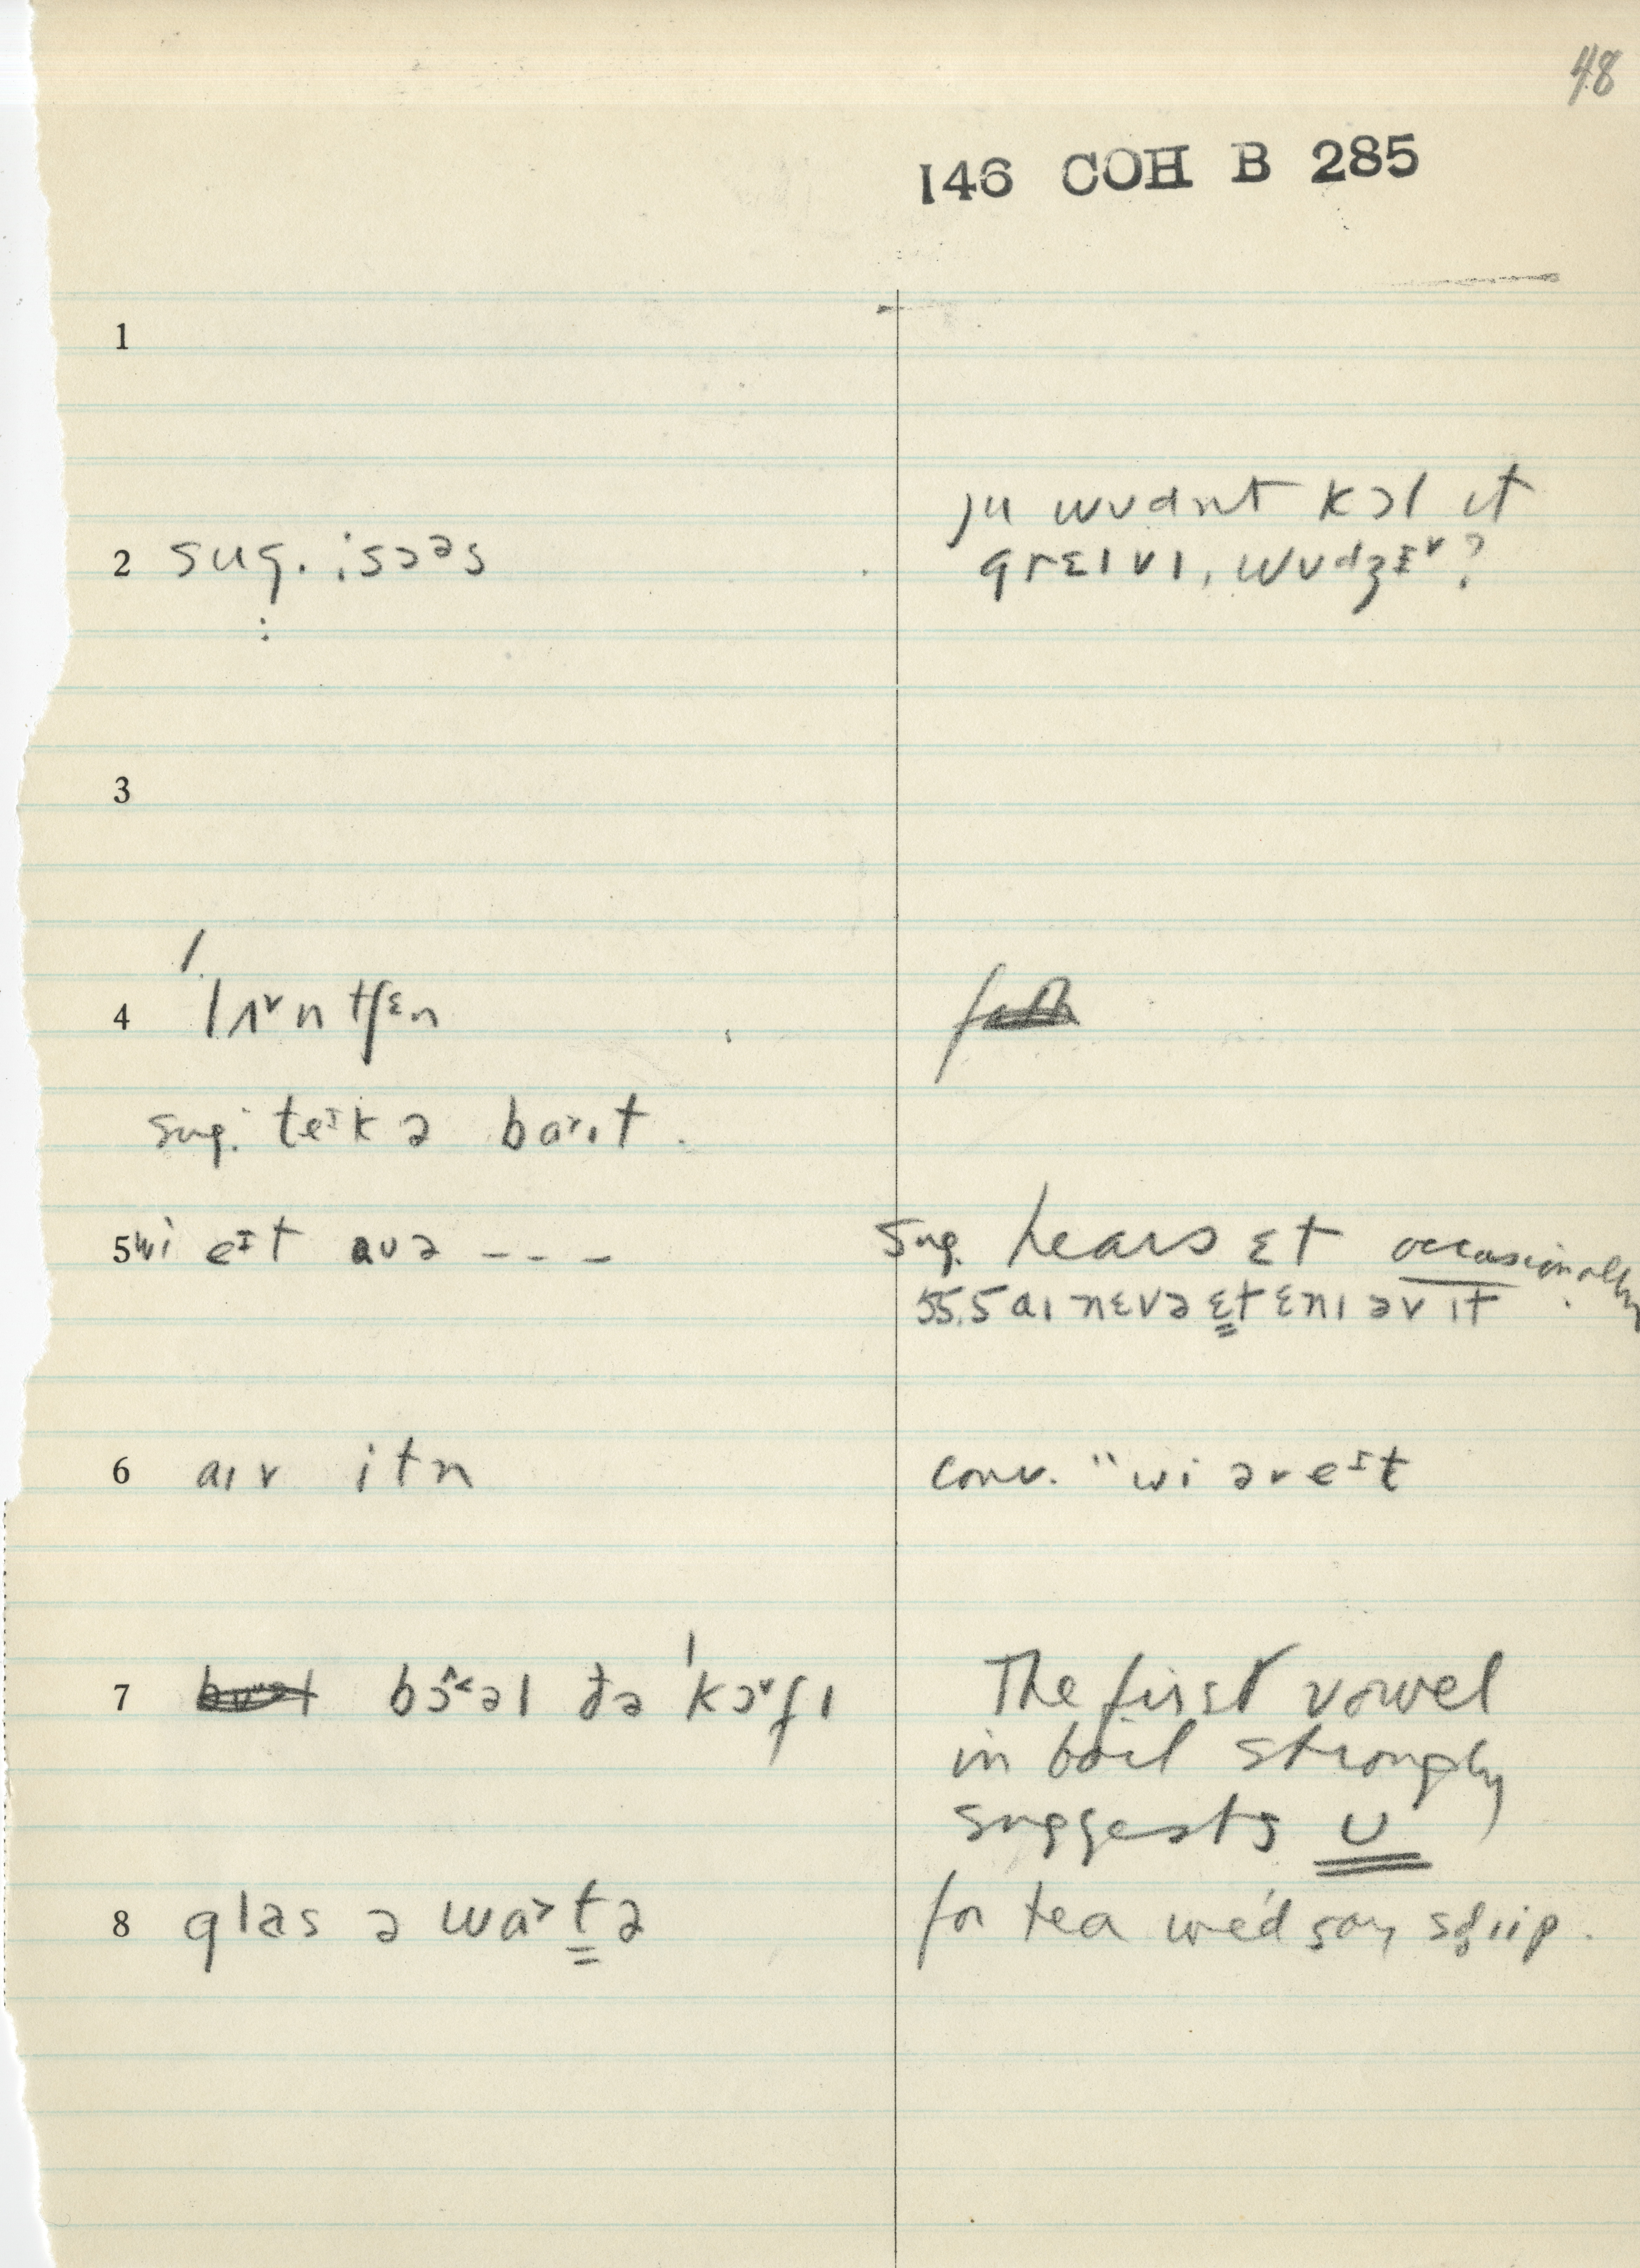 48
146 COH B 285
1
2 sug. : sɔəs
ju wʊdnt kɔl ɪt
grɛɪvɪ, wʊdʒɛ˅?
3
4 lʌ˅ntʃɛn
sug. teɪk ə baɪt.
5 wi eɪt aʊə - - -
sug. hears ɛt occasionally
55.5 aɪ nɛvə ɛt ɛnɪ əv ɪt
6 aɪv itn
conv. "wi əv eɪt
7 bɔ^<əl ðə 'kɔ˅fɪ
The first vowel
in boil strongly
suggests ʊ
8 glas ə wa>tə
for tea we'd say